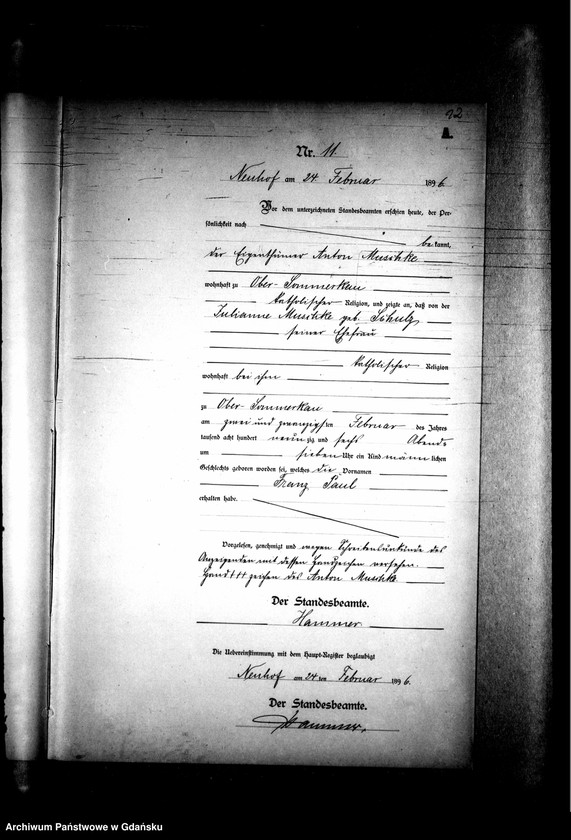 92
A.
Nr. 11
Neuhof am 24 Februar 1896.
Vor dem unterzeichneten Standesbeamten erschien heute, der Per-
sönlichkeit nach
bekannt,
der Eigenthümer Anton Muschke
wohnhaft zu Ober-Sommerkau
katholischer Religion, und zeigte an, daß von der
Julianne Muschke geb. Schulz
seiner Ehefrau
katholischer Religion
wohnhaft bei ihm
zu Ober-Sommerkau
am zwei und zwanzigsten Februar des Jahres
tausend acht hundert neunzig und sechs Abends
um sieben Uhr ein Kind männlichen
Geschlechts geboren worden sei, welches die Vornamen
Franz Paul
erhalten habe.
Vorgelesen, genehmigt und wegen Schreibensunkunde des
Anzeigenden mit dessen Handzeichen versehen.
Hand +++ zeichen des Anton Muschke
Der Standesbeamte.
Hammer
Die Uebereinstimmung mit dem Haupt-Register beglaubigt
Neuhof am 24 ten Februar 1896.
Der Standesbeamte.
Hammer.
Archiwum Państwowe w Gdańsku